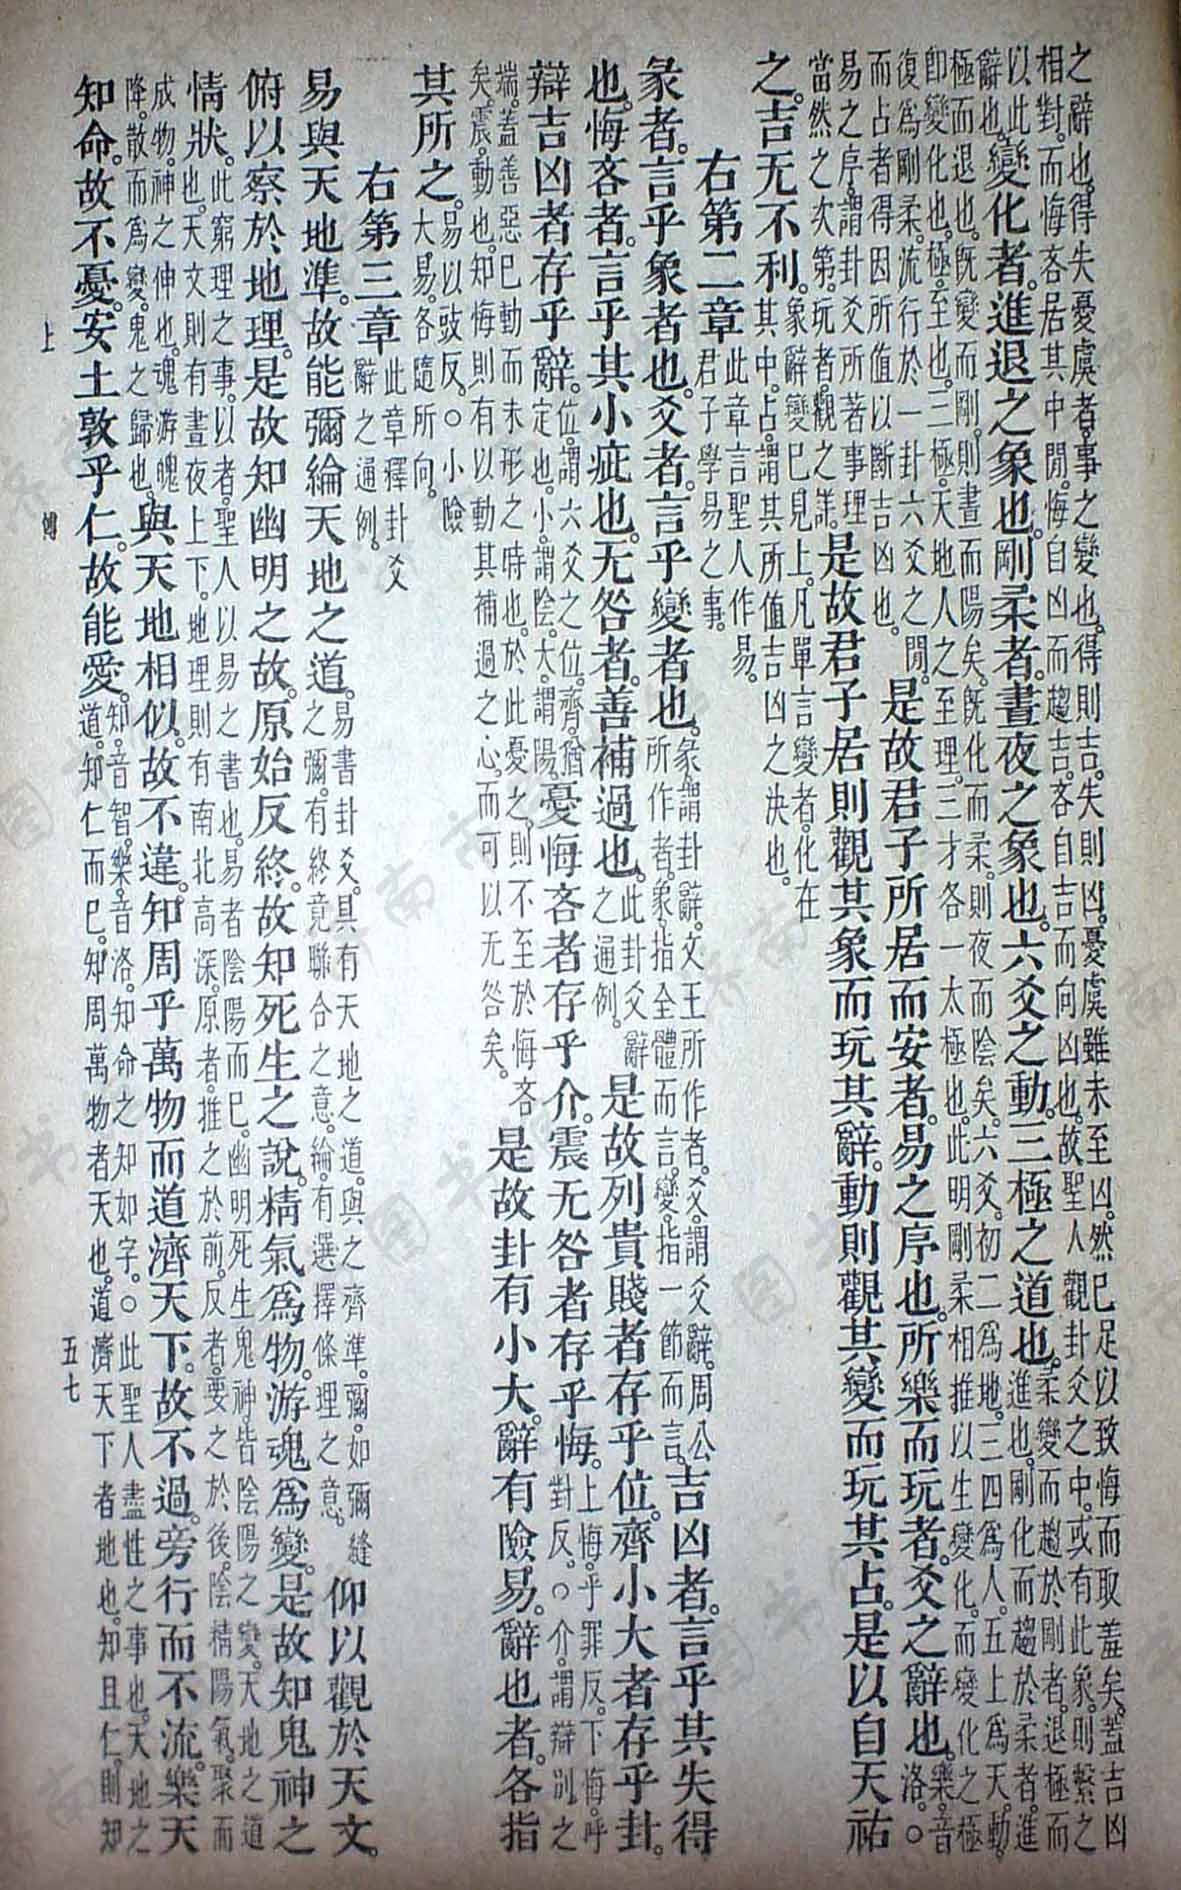 之辭也。得失憂虞者。事之變也。得則吉。失則凶。憂虞雖未至凶。然已足以致悔而取羞矣。蓋吉凶
相對。而悔吝居其中閒。悔自凶而趨吉。吝自吉而向凶也。故聖人觀卦爻之中。或有此象。則繫之
以此辭也。變化者。進退之象也。剛柔者。晝夜之象也。六爻之動。三極之道也。柔變而趨於剛者。退極而進也。剛化而趨於柔者。進
極而退也。既變而剛。則晝而陽矣。既化而柔。則夜而陰矣。六爻。初二爲地。三四爲人。五上爲天。動
即變化也。極。至也。三極。天地人之至理。三才各一太極也。此明剛柔相推以生變化。而變化之極
復爲剛柔。流行於一卦六爻之閒。而占者得因所值以斷吉凶也。是故君子所居而安者。易之序也。所樂而玩者。爻之辭也。樂。音洛。○
易之序。謂卦爻所著事理當然之次第。玩者。觀之詳。是故君子居則觀其象而玩其辭。動則觀其變而玩其占。是以自天祐
之。吉无不利。象辭變已見上。凡單言變者。化在其中。占。謂其所值吉凶之決也。
右第二章此章言聖人作易。君子學易之事。
彖者。言乎象者也。爻者。言乎變者也。彖。謂卦辭。文王所作者。爻。謂爻辭。周公所作者。象。指全體而言。變。指一節而言。吉凶者。言乎其失得
也。悔吝者。言乎其小疵也。无咎者。善補過也。此卦爻辭之通例。是故列貴賤者存乎位。齊小大者存乎卦。
辯吉凶者存乎辭。位。謂六爻之位。齊。猶定也。小。謂陰。大。謂陽。憂悔吝者存乎介。震无咎者存乎悔。上悔。乎罪反。下悔。呼對反。○介。謂辯別之
端。蓋善惡已動而未形之時也。於此憂之。則不至於悔吝矣。震。動也。知悔則有以動其補過之心。而可以无咎矣。是故卦有小大。辭有險易。辭也者。各指
其所之。易。以豉反。○小險大易。各隨所向。
右第三章此章釋卦爻辭之通例。
易與天地準。故能彌綸天地之道。易書卦爻。具有天地之道。與之齊準。彌。如彌縫之彌。有終竟聯合之意。綸。有選擇條理之意。仰以觀於天文。
俯以察於地理。是故知幽明之故。原始反終。故知死生之說。精氣爲物。游魂爲變。是故知鬼神之
情狀。此窮理之事。以者。聖人以易之書也。易者陰陽而已。幽明死生鬼神。皆陰陽之變。天地之道也。天文則有晝夜上下。地理則有南北高深。原者。推之於前。反者。要之於後。陰精陽氣。聚而
成物。神之伸也。魂游魄降。散而爲變。鬼之歸也。與天地相似。故不違。知周乎萬物而道濟天下。故不過。旁行而不流。樂天
知命。故不憂。安土敦乎仁。故能愛。知。音智。樂。音洛。知命之知如字。○此聖人盡性之事也。天地之道。知仁而已。知周萬物者天也。道濟天下者地也。知且仁。則知
上傳 五七